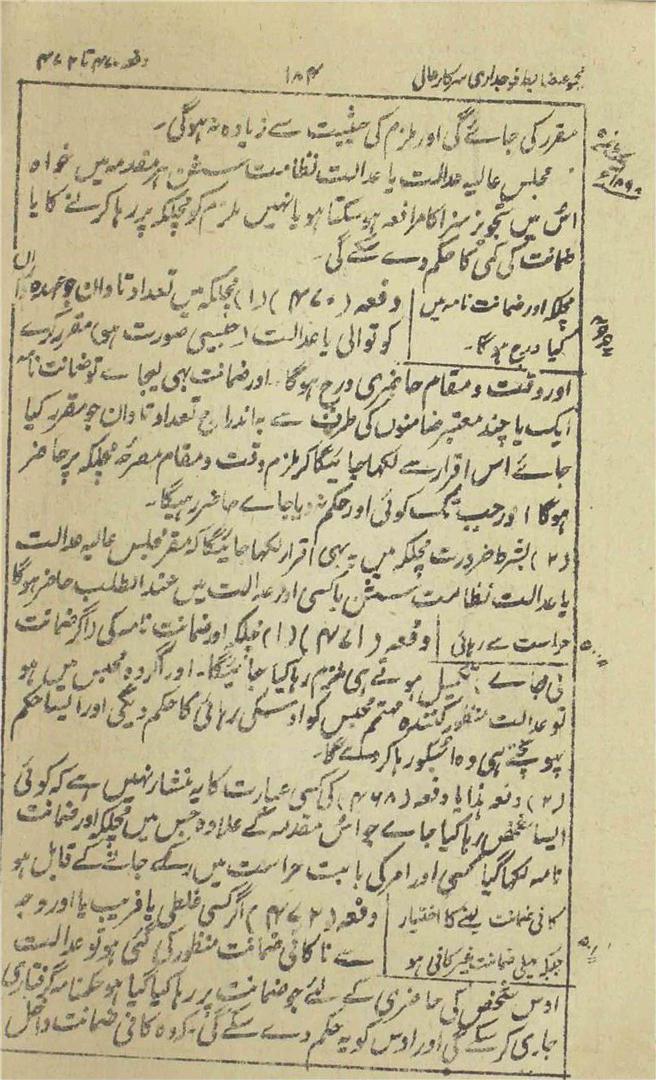 مجموعہ ضابطہ فوجداری سرکار عالی
۱۸۴
دفعہ ۴۷۰ تا ۴۷۲
مقرر کی جائے گی اور ملزم کی حیثیت سے زیادہ نہ ہوگی۔
مجلس عالیہ عدالت یا عدالت نظامت سشن ہر مقدمہ میں خواہ
اس میں تجویز سزا کا مرافعہ ہو سکتا ہو یا نہیں ملزم کو مچلکہ پر رہا کرنے کا یا
ضمانت کی کمی کا حکم دے سکے گی۔
مچلکہ اور ضمانت نامہ میں
کیا درج ہوگا۔
دفعہ (۴۷۰) (۱) مچلکہ میں تعداد تاوان جو عہدہ دار
کوتوالی یا عدالت (جیسی صورت ہو) مقرر کرے
اور وقت و مقام حاضری درج ہوگا۔ اور ضمانت بھی لیجائے تو ضمانت نامہ
ایک یا چند معتبر ضامنوں کی طرف سے بہ اندراج تعداد تاوان جو مقرر کیا
جائے اس اقرار سے لکھا جائیگا کہ ملزم وقت و مقام مصرحہ مچلکہ پر حاضر
ہوگا اور جب تک کوئی اور حکم نہ دیا جاے حاضر رہیگا۔
(۲) بشرط ضرورت مچلکہ میں یہ بھی اقرار لکھا جائیگا کہ مقر مجلس عالیہ عدالت
یا عدالت نظامت سشن یا کسی اور عدالت میں عند الطلب حاضر ہوگا
حراست سے رہائی
دفعہ (۴۷۱) (۱) مچلکہ اور ضمانت نامہ کی (اگر ضمانت
لی جاے) تکمیل ہوتے ہی ملزم رہا کیا جائیگا۔ اور اگر وہ محبس میں ہو
تو عدالت منظور کنندہ مہتمم محبس کو اوسکی رہائی کا حکم دیگی اور ایسا حکم
پہونچتے ہی وہ اسکو رہا کر دے گا۔
(۲) دفعہ ہذا یا دفعہ (۴۶۸) کی کسی عبارت کا یہ منشار نہیں ہے کہ کوئی
ایسا شخص رہا کیا جاے جو اس مقدمہ کے علاوہ جس میں مچلکہ اور ضمانت
نامہ لکھا گیا کسی اور امر کی بابت حراست میں رکھے جانے کے قابل ہو
کافی ضمانت لینے کا اختیار
جبکہ پہلی ضمانت غیر کافی ہو
دفعہ (۴۷۲) اگر کسی غلطی یا فریب یا اور وجہ
سے ناکافی ضمانت منظور کی گئی ہو تو عدالت
اوس شخص کی حاضری کے لئے جو ضمانت پر رہا کیا گیا ہو حکمنامہ گرفتاری
جاری کر سکے گی اور اوس کو یہ حکم دے سکے گی۔ کہ وہ کافی ضمانت داخل